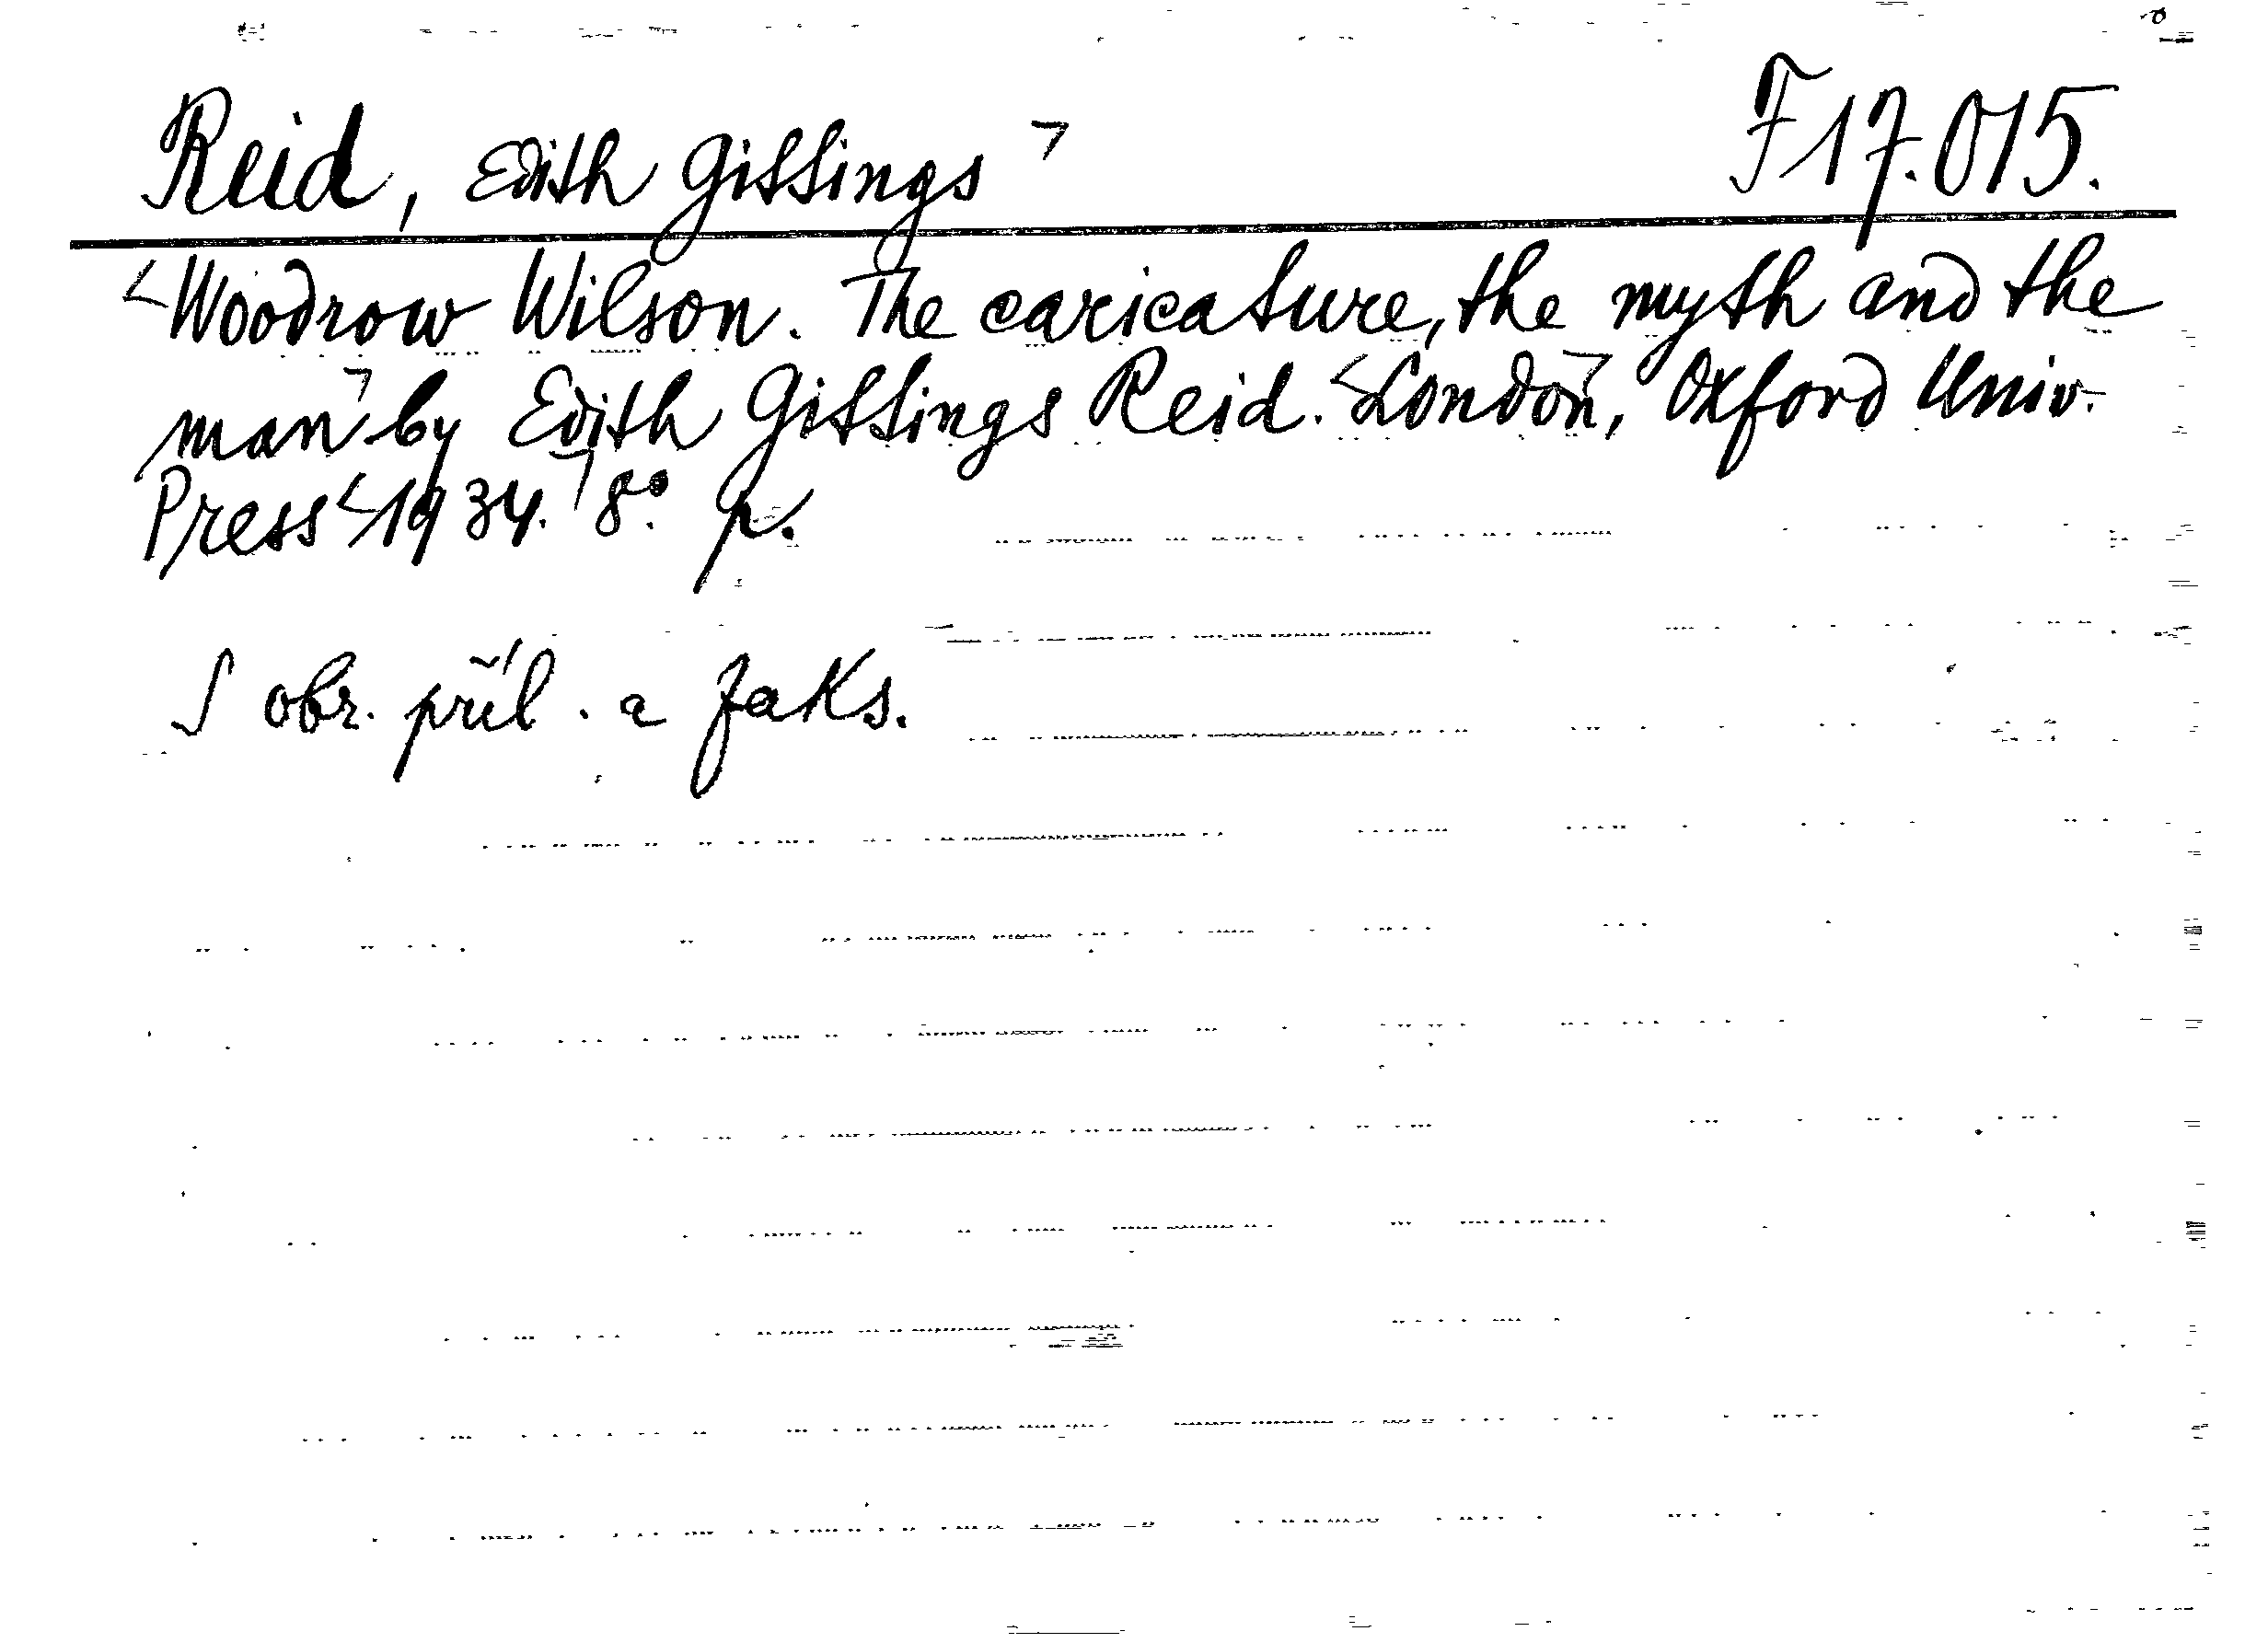 Reid, Edith Gittings ㄱ F 17.015.
<Woodrow Wilson. The caricature, the myth and the
man ㄱ by Edith Gittings Reid. <Londonㄱ, Oxford Univ.
Press <1934.ㄱ 8°. p.
S obr. příl. a faks.